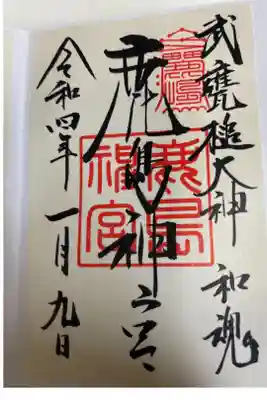 武甕槌大神 和魂
鹿島神宮
鹿島
神宮
令和四年 一月九日